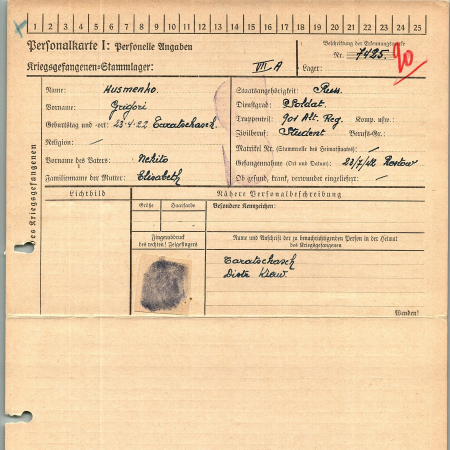 1 2 3 4 5 6 7 8 9 10 11 12 13 14 15 16 17 18 19 20 21 22 23 24 25
Personalkarte I: Personelle Angaben
Kriegsgefangenen-Stammlager: VIII A
Beschriftung der Erkennungsmarke
Nr. 7425
Lager:
des Kriegsgefangenen
Name: Kusmenko
Vorname: Grigori
Geburtstag und -ort: 23.4.22 Taratschasch
Religion: —
Vorname des Vaters: Nekito
Familienname der Mutter: Elisabeth
Staatsangehörigkeit: Russ.
Dienstgrad: Soldat
Truppenteil: 901 Alt. Reg. Komp. usw.:
Zivilberuf: Student Berufs-Gr.:
Matrikel Nr. (Stammrolle des Heimatstaates): —
Gefangennahme (Ort und Datum): 23/7/42 Rostow
Ob gesund, krank, verwundet eingeliefert: —
Lichtbild
Nähere Personalbeschreibung
Größe
Haarfarbe
Besondere Kennzeichen:
Fingerabdruck
des rechten! Zeigefingers
Name und Anschrift der zu benachrichtigenden Person in der Heimat
des Kriegsgefangenen
Taratschasch
Distr Kiew.
Wenden!